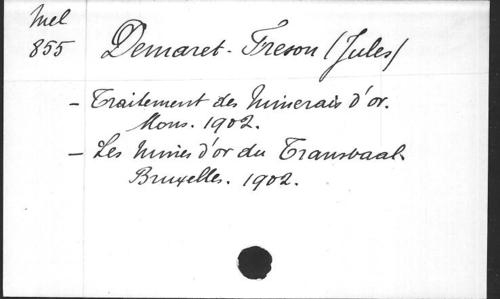 Mel
855
Demaret-Freson (Jules)
- Traitement des Minerais d'or.
Mons. 1902.
- Les Mines d'or du Transvaal.
Bruxelles. 1902.